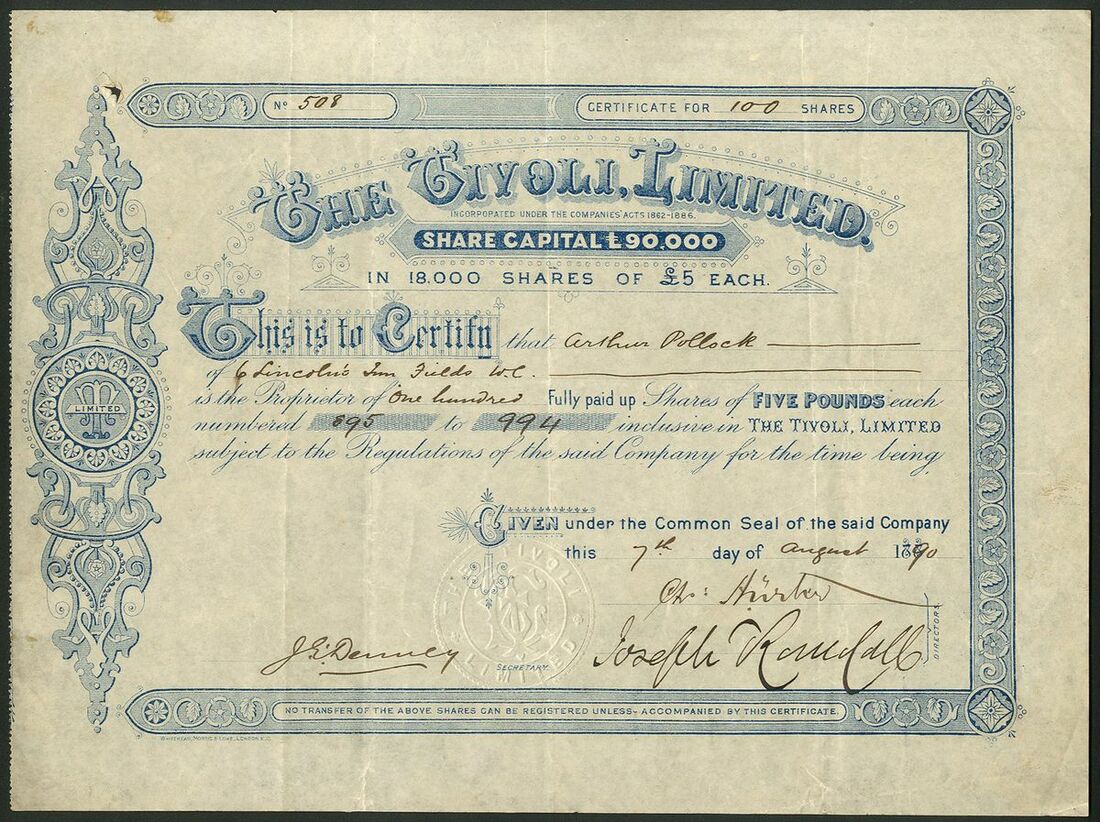 No 508
CERTIFICATE FOR 100 SHARES
THE TIVOLI, LIMITED.
INCORPORATED UNDER THE COMPANIES' ACTS 1862-1886.
SHARE CAPITAL £90,000
IN 18,000 SHARES OF £5 EACH.
This is to Certify that Arthur Pollock
of 6 Lincoln's Inn Fields W.C.
is the Proprietor of One hundred Fully paid up Shares of FIVE POUNDS each
numbered 895 to 994 inclusive in THE TIVOLI, LIMITED
subject to the Regulations of the said Company for the time being
LIMITED
GIVEN under the Common Seal of the said Company
this 7th day of August 1890
THE TIVOLI LIMITED
Joseph
DIRECTORS.
SECRETARY.
NO TRANSFER OF THE ABOVE SHARES CAN BE REGISTERED UNLESS ACCOMPANIED BY THIS CERTIFICATE.
WHITEHEAD, MORRIS & LOWE, LONDON, E.C.